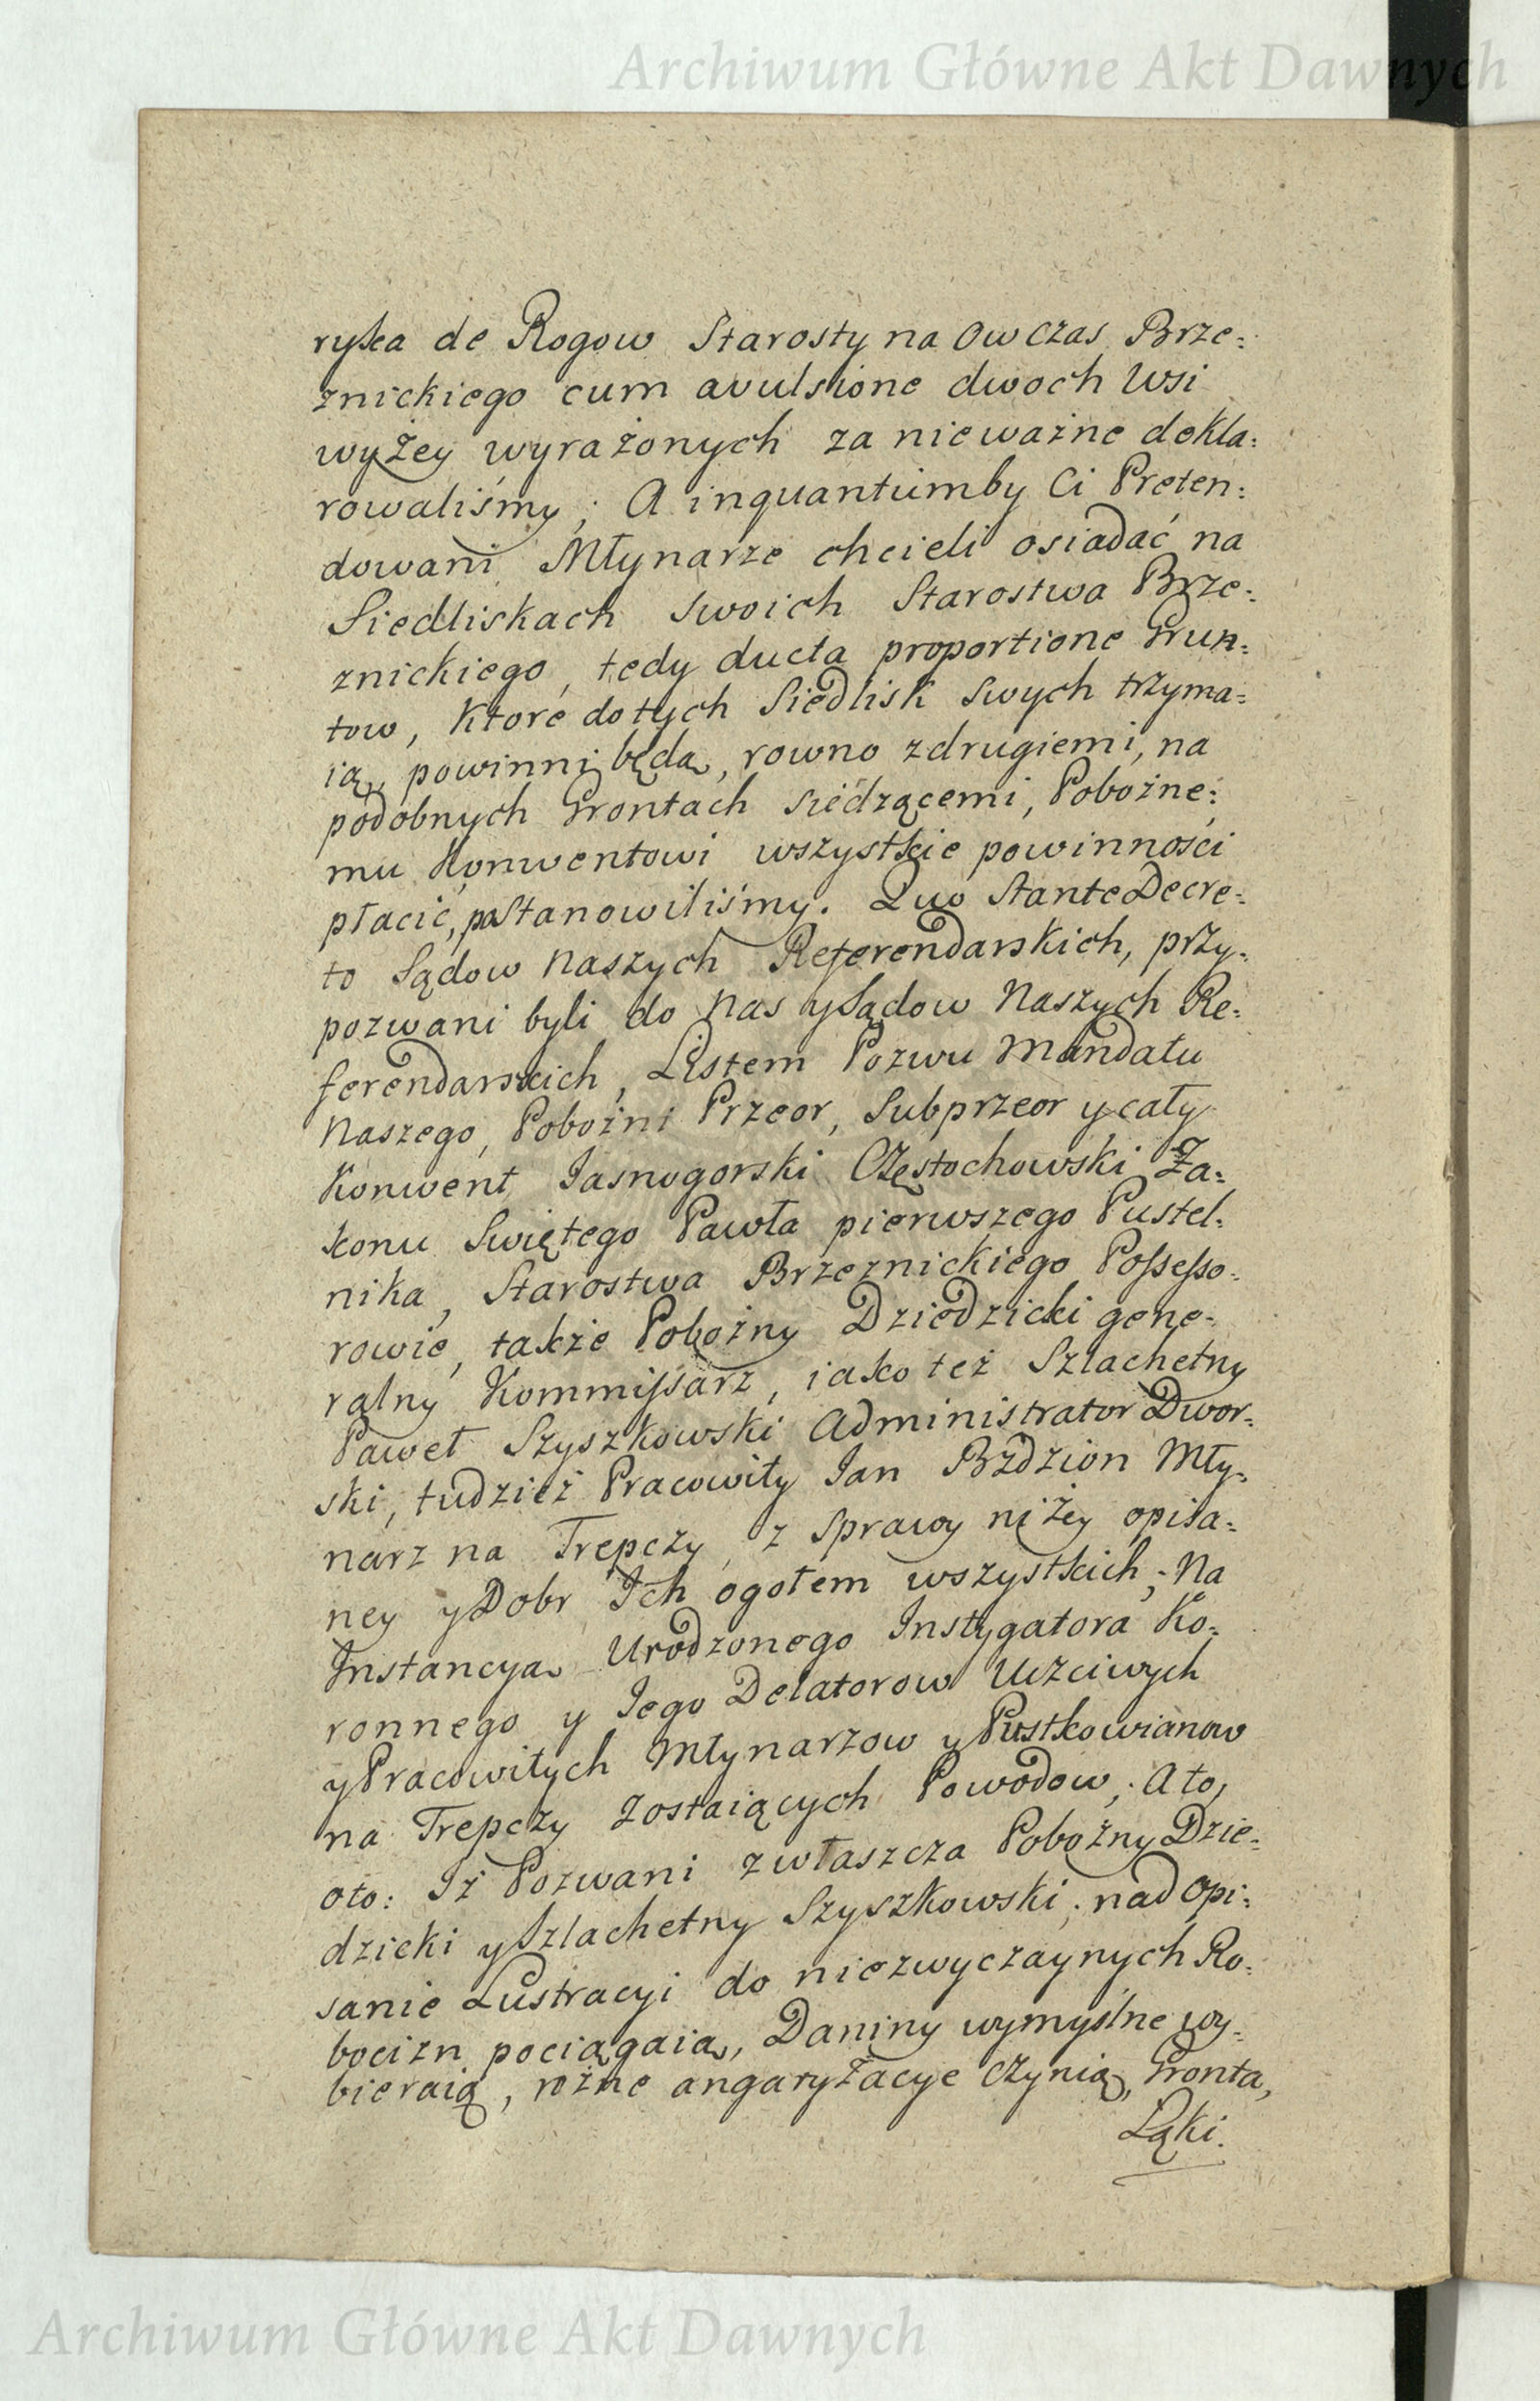 Archiwum Główne Akt Dawnych
ryka de Rogow Starosty na owczas Brze=
znickiego cum avulsione dwoch Wsi
wyżey wyrażonych za nieważne dekla=
rowaliśmy; A inquantumby Ci Preten=
dowani Młynarze chcieli osiadać na
Siedliskach swoich Starostwa Brze=
znickiego, tedy ducta proportione Grun=
tow, ktore do tych Siedlisk swych trzyma=
ią, powinni będą, rowno z drugiemi, na
podobnych Grontach siedzącemi, Pobożne=
mu Konwentowi wszystkie powinności
płacić, postanowiliśmy. Quo stante Decre=
to Sądow Naszych Referendarskich, przy=
pozwani byli do Nas y Sądow Naszych Re=
ferendarskich, Listem Pozwu Mandatu
Naszego, Pobożni Przeor, Subprzeor y cały
Konwent Iasnogorski Częstochowski Za=
konu Swiętego Pawła pierwszego Pustel=
nika, Starostwa Brzeznickiego Possesso=
rowie, także Pobożny Dziedzicki gene=
ralny Kommissarz, iako też Szlachetny
Paweł Szyszkowski Administrator Dwor=
ski, tudzież Pracowity Ian Bzdzion Mły=
narz na Trepczy, z sprawy niżey opisa=
ney y Dobr Ich ogołem wszystkich; Na
Instancyą Urodzonego Instygatora Ko=
ronnego y Iego Delatorow Uczciwych
y Pracowitych Młynarzow y Pustkowianow
na Trepczy zostaiących Powodow; A to,
oto: Iż Pozwani zwłaszcza Pobożny Dzie=
dzicki y Szlachetny Szyszkowski; nad opi=
sanie Lustracyi do niezwyczaynych Ro=
bocizn pociągaią, Daniny wymyślne wy=
bieraią, rożne angaryżacye czynią, Gronta,
Łąki.
Archiwum Główne Akt Dawnych